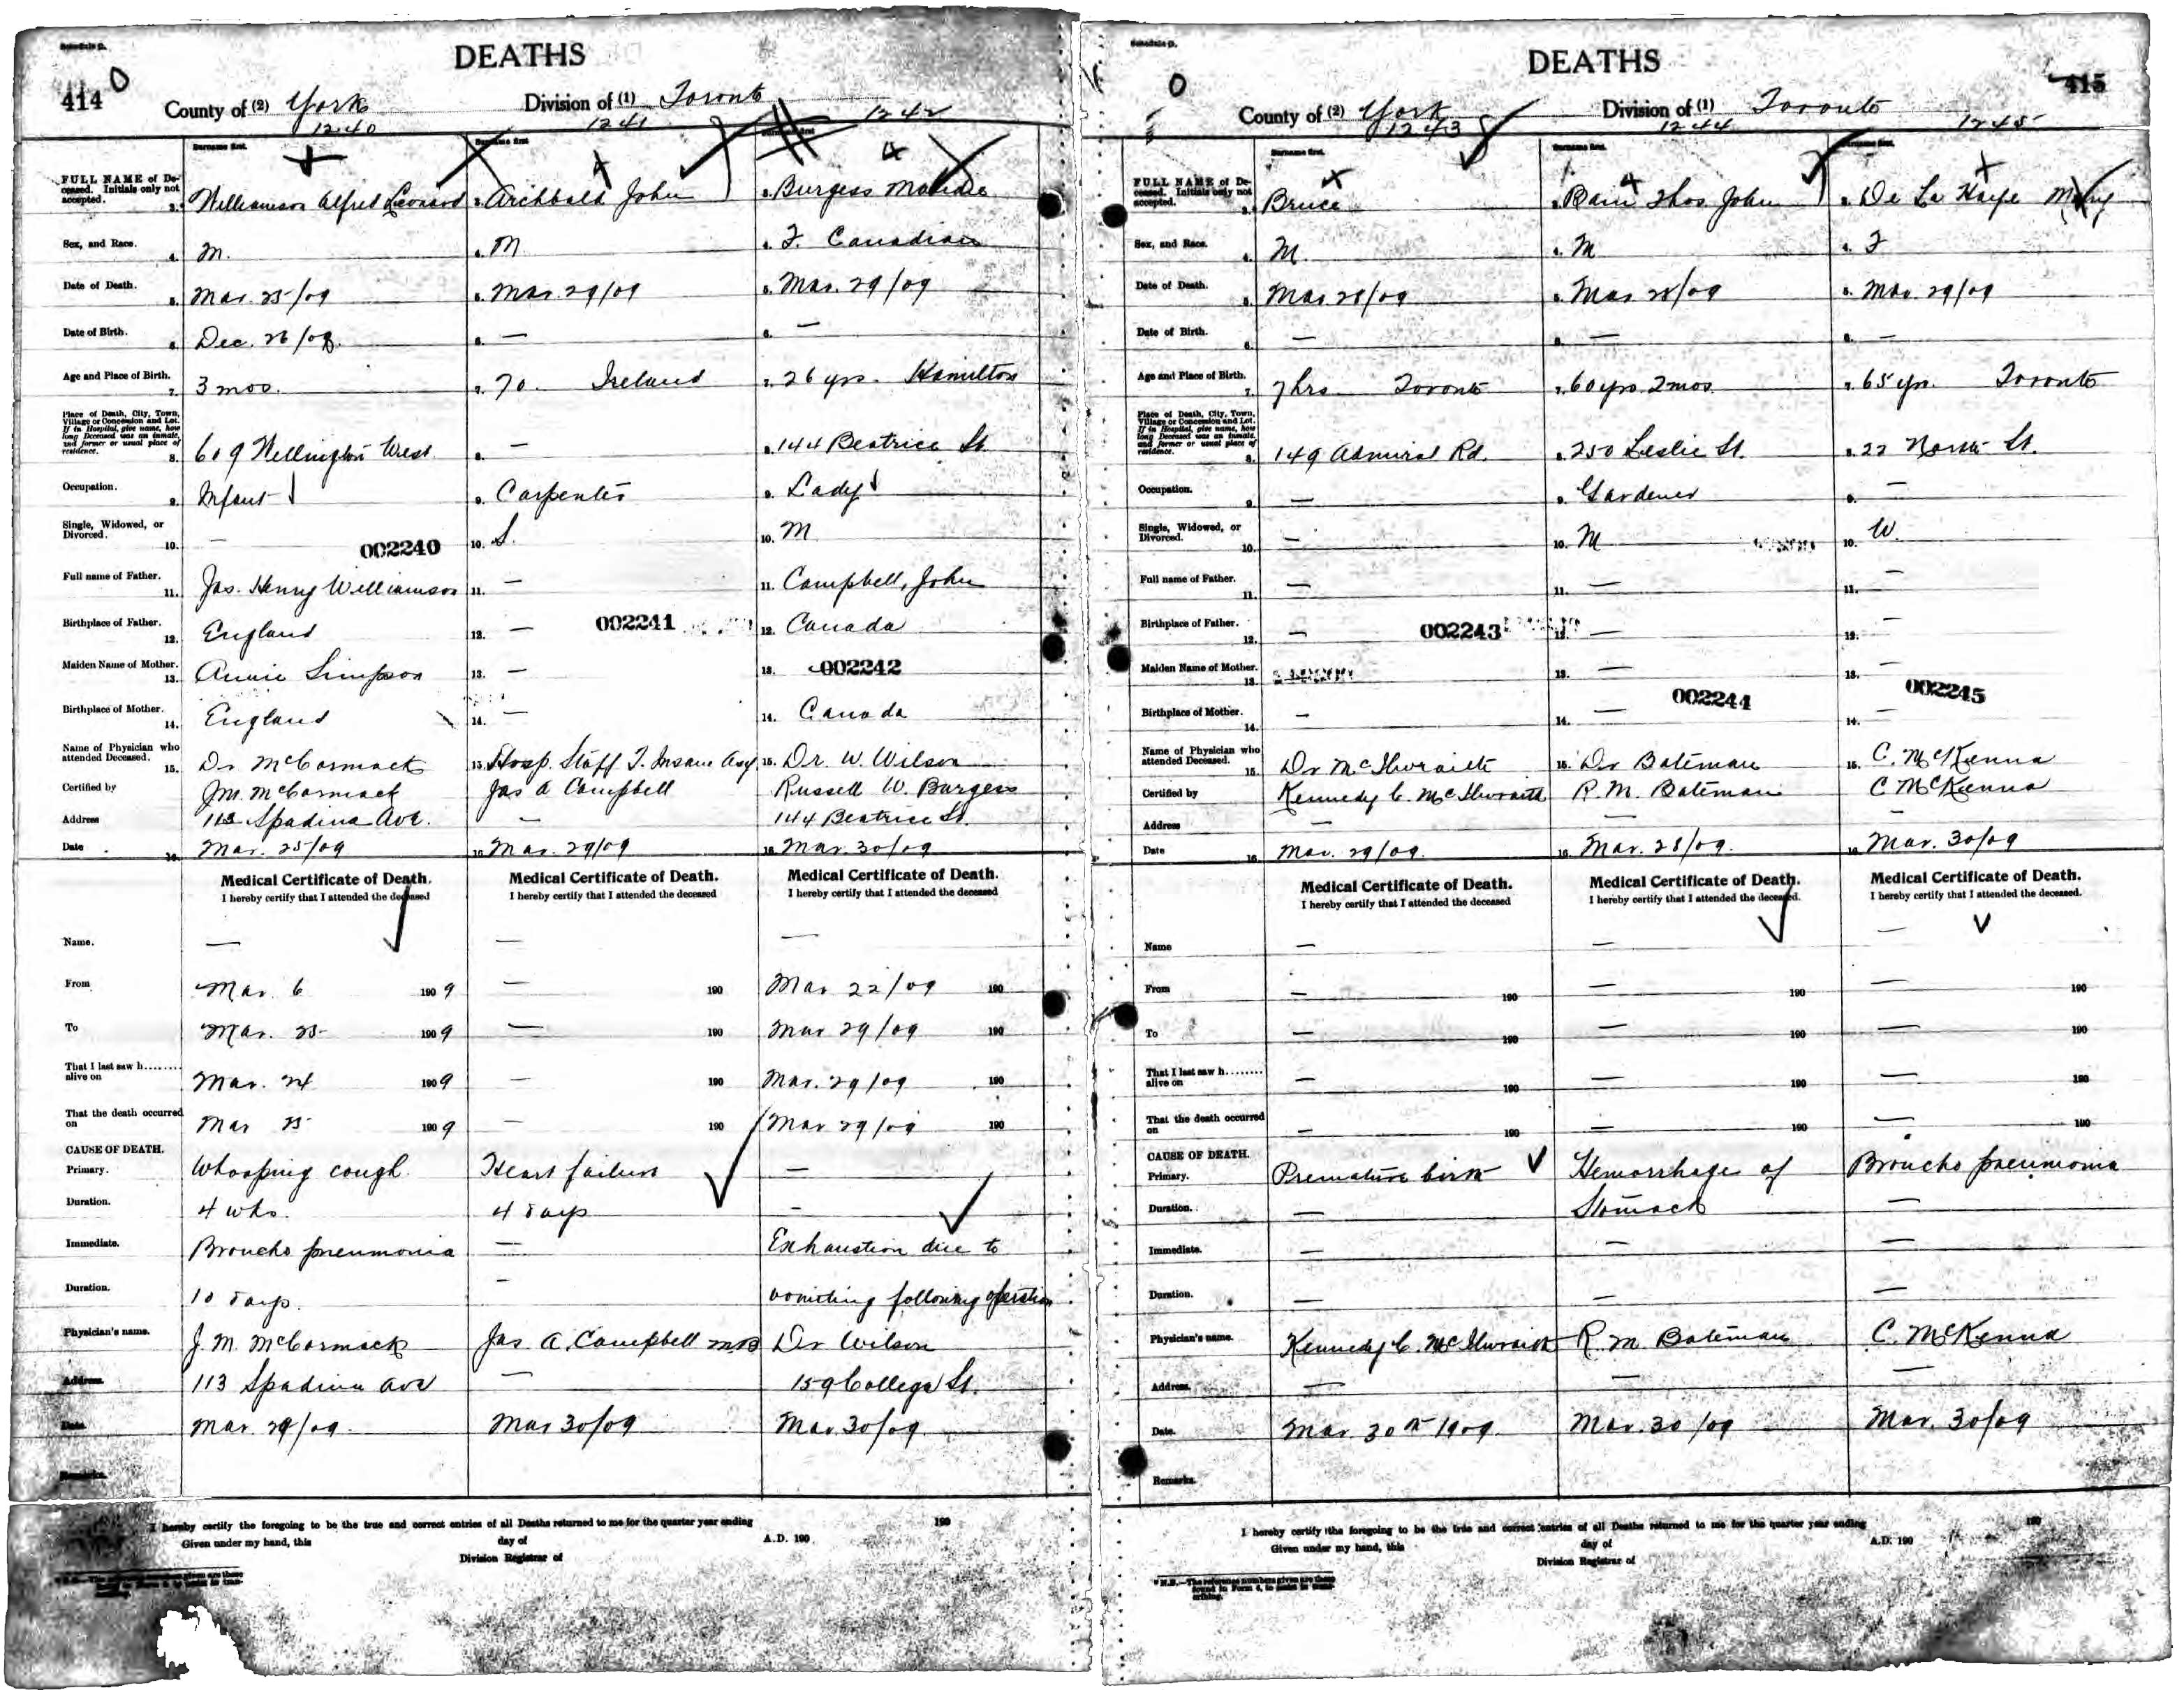 Schedule D.
DEATHS
414 0
County of (2) York Division of (1) Toronto
1240 1241 1242
Surname first. Surname first. Surname first.
FULL NAME of Deceased. Initials only not accepted. 3. Williamson Alfred Leonard 3. Archbald John 3. Burgess Matilda
Sex, and Race. 4. M. 4. M 4. F. Canadian
Date of Death. 5. Mar. 25/09 5. Mar. 29/09 5. Mar. 29/09
Date of Birth. 6. Dec. 26/08. 6. — 6. —
Age and Place of Birth. 7. 3 mos. 7. 70. Ireland 7. 26 yrs. Hamilton
Place of Death, City, Town, Village or Concession and Lot. If in Hospital, give name, how long Deceased was an inmate, and former or usual place of residence. 8. 609 Wellington West 8. — 8. 144 Beatrice St.
Occupation. 9. Infant 9. Carpenter 9. Lady
Single, Widowed, or Divorced. 10. — 002240 10. S. 10. M
Full name of Father. 11. Jas. Henry Williamson 11. — 11. Campbell, John
Birthplace of Father. 12. England 12. — 002241 12. Canada
Maiden Name of Mother. 13. Annie Simpson 13. — 13. 002242
Birthplace of Mother. 14. England 14. — 14. Canada
Name of Physician who attended Deceased. 15. Dr McCormack 15. Hosp. Staff T. Insane Asy 15. Dr. W. Wilson
Certified by J.M. McCormack Jas A Campbell Russell W. Burgess
Address 113 Spadina Ave. — 144 Beatrice St.
Date 16. Mar. 25/09 16. Mar. 29/09 16. Mar. 30/09
Medical Certificate of Death. Medical Certificate of Death. Medical Certificate of Death.
I hereby certify that I attended the deceased I hereby certify that I attended the deceased I hereby certify that I attended the deceased
Name. — — —
From Mar. 6 1909 — 190 Mar 22/09 190
To Mar. 25 1909 — 190 Mar 29/09 190
That I last saw h........ alive on Mar. 24 1909 — 190 Mar. 29/09 190
That the death occurred on Mar 25 1909 — 190 Mar 29/09 190
CAUSE OF DEATH.
Primary. Whooping cough. Heart failure —
Duration. 4 wks. 4 days —
Immediate. Broncho pneumonia — Exhaustion due to
Duration. 10 days. — vomiting following operation
Physician's name. J. M. McCormack Jas. A. Campbell M.B Dr Wilson
Address. 113 Spadina Ave — 159 College St.
Date. Mar. 29/09. Mar 30/09 Mar. 30/09
Remarks.
I hereby certify the foregoing to be the true and correct entries of all Deaths returned to me for the quarter year ending 190
Given under my hand, this day of A.D. 190
Division Registrar of
Schedule D.
DEATHS
0 415
County of (2) York Division of (1) Toronto
1243 1244 1245
Surname first. Surname first. Surname first.
FULL NAME of Deceased. Initials only not accepted. 3. Bruce 3. Bain Thos. John 3. De La Haye Mary
Sex, and Race. 4. M. 4. M 4. F
Date of Death. 5. Mar 28/09 5. Mar 28/09 5. Mar. 29/09
Date of Birth. 6. — 6. — 6. —
Age and Place of Birth. 7. 7 hrs Toronto 7. 60 yrs. 2 mos. 7. 65 yrs. Toronto
Place of Death, City, Town, Village or Concession and Lot. If in Hospital, give name, how long Deceased was an inmate, and former or usual place of residence. 8. 149 Admiral Rd. 8. 250 Leslie St. 8. 22 North St.
Occupation. 9. — 9. Gardener 9. —
Single, Widowed, or Divorced. 10. — 10. M 10. W.
Full name of Father. 11. — 11. — 11. —
Birthplace of Father. 12. — 002243 12. — 12. —
Maiden Name of Mother. 13. 13. — 13. —
002244 002245
Birthplace of Mother. 14. — 14. — 14. —
Name of Physician who attended Deceased. 15. Dr McIlwraith 15. Dr Bateman 15. C. McKenna
Certified by Kennedy C. McIlwraith R. M. Bateman C McKenna
Address — — —
Date 16. Mar. 29/09. 16. Mar. 28/09. 16. Mar. 30/09
Medical Certificate of Death. Medical Certificate of Death. Medical Certificate of Death.
I hereby certify that I attended the deceased I hereby certify that I attended the deceased. I hereby certify that I attended the deceased.
Name — — —
From — 190 — 190 — 190
To — 190 — 190 — 190
That I last saw h........ alive on — 190 — 190 — 190
That the death occurred on — 190 — 190 — 190
CAUSE OF DEATH.
Primary. Premature birth Hemorrhage of Broncho pneumonia
Duration. — Stomach —
Immediate. — — —
Duration. — — —
Physician's name. Kennedy C. McIlwraith R. M. Bateman C. McKenna
Address. — — —
Date. Mar 30th 1909. Mar. 30/09 Mar. 30/09
Remarks.
I hereby certify the foregoing to be the true and correct entries of all Deaths returned to me for the quarter year ending 190
Given under my hand, this day of A.D. 190
Division Registrar of
* N.B.—The reference numbers given are those found in Form 4, to assist in transcribing.